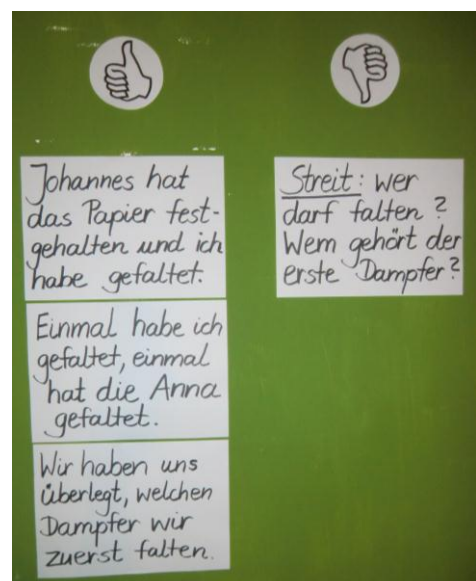 Johannes hat
das Papier fest-
gehalten und ich
habe gefaltet.
Einmal habe ich
gefaltet, einmal
hat die Anna
gefaltet.
Wir haben uns
überlegt, welchen
Dampfer wir
zuerst falten.
Streit: wer
darf falten?
Wem gehört der
erste Dampfer?